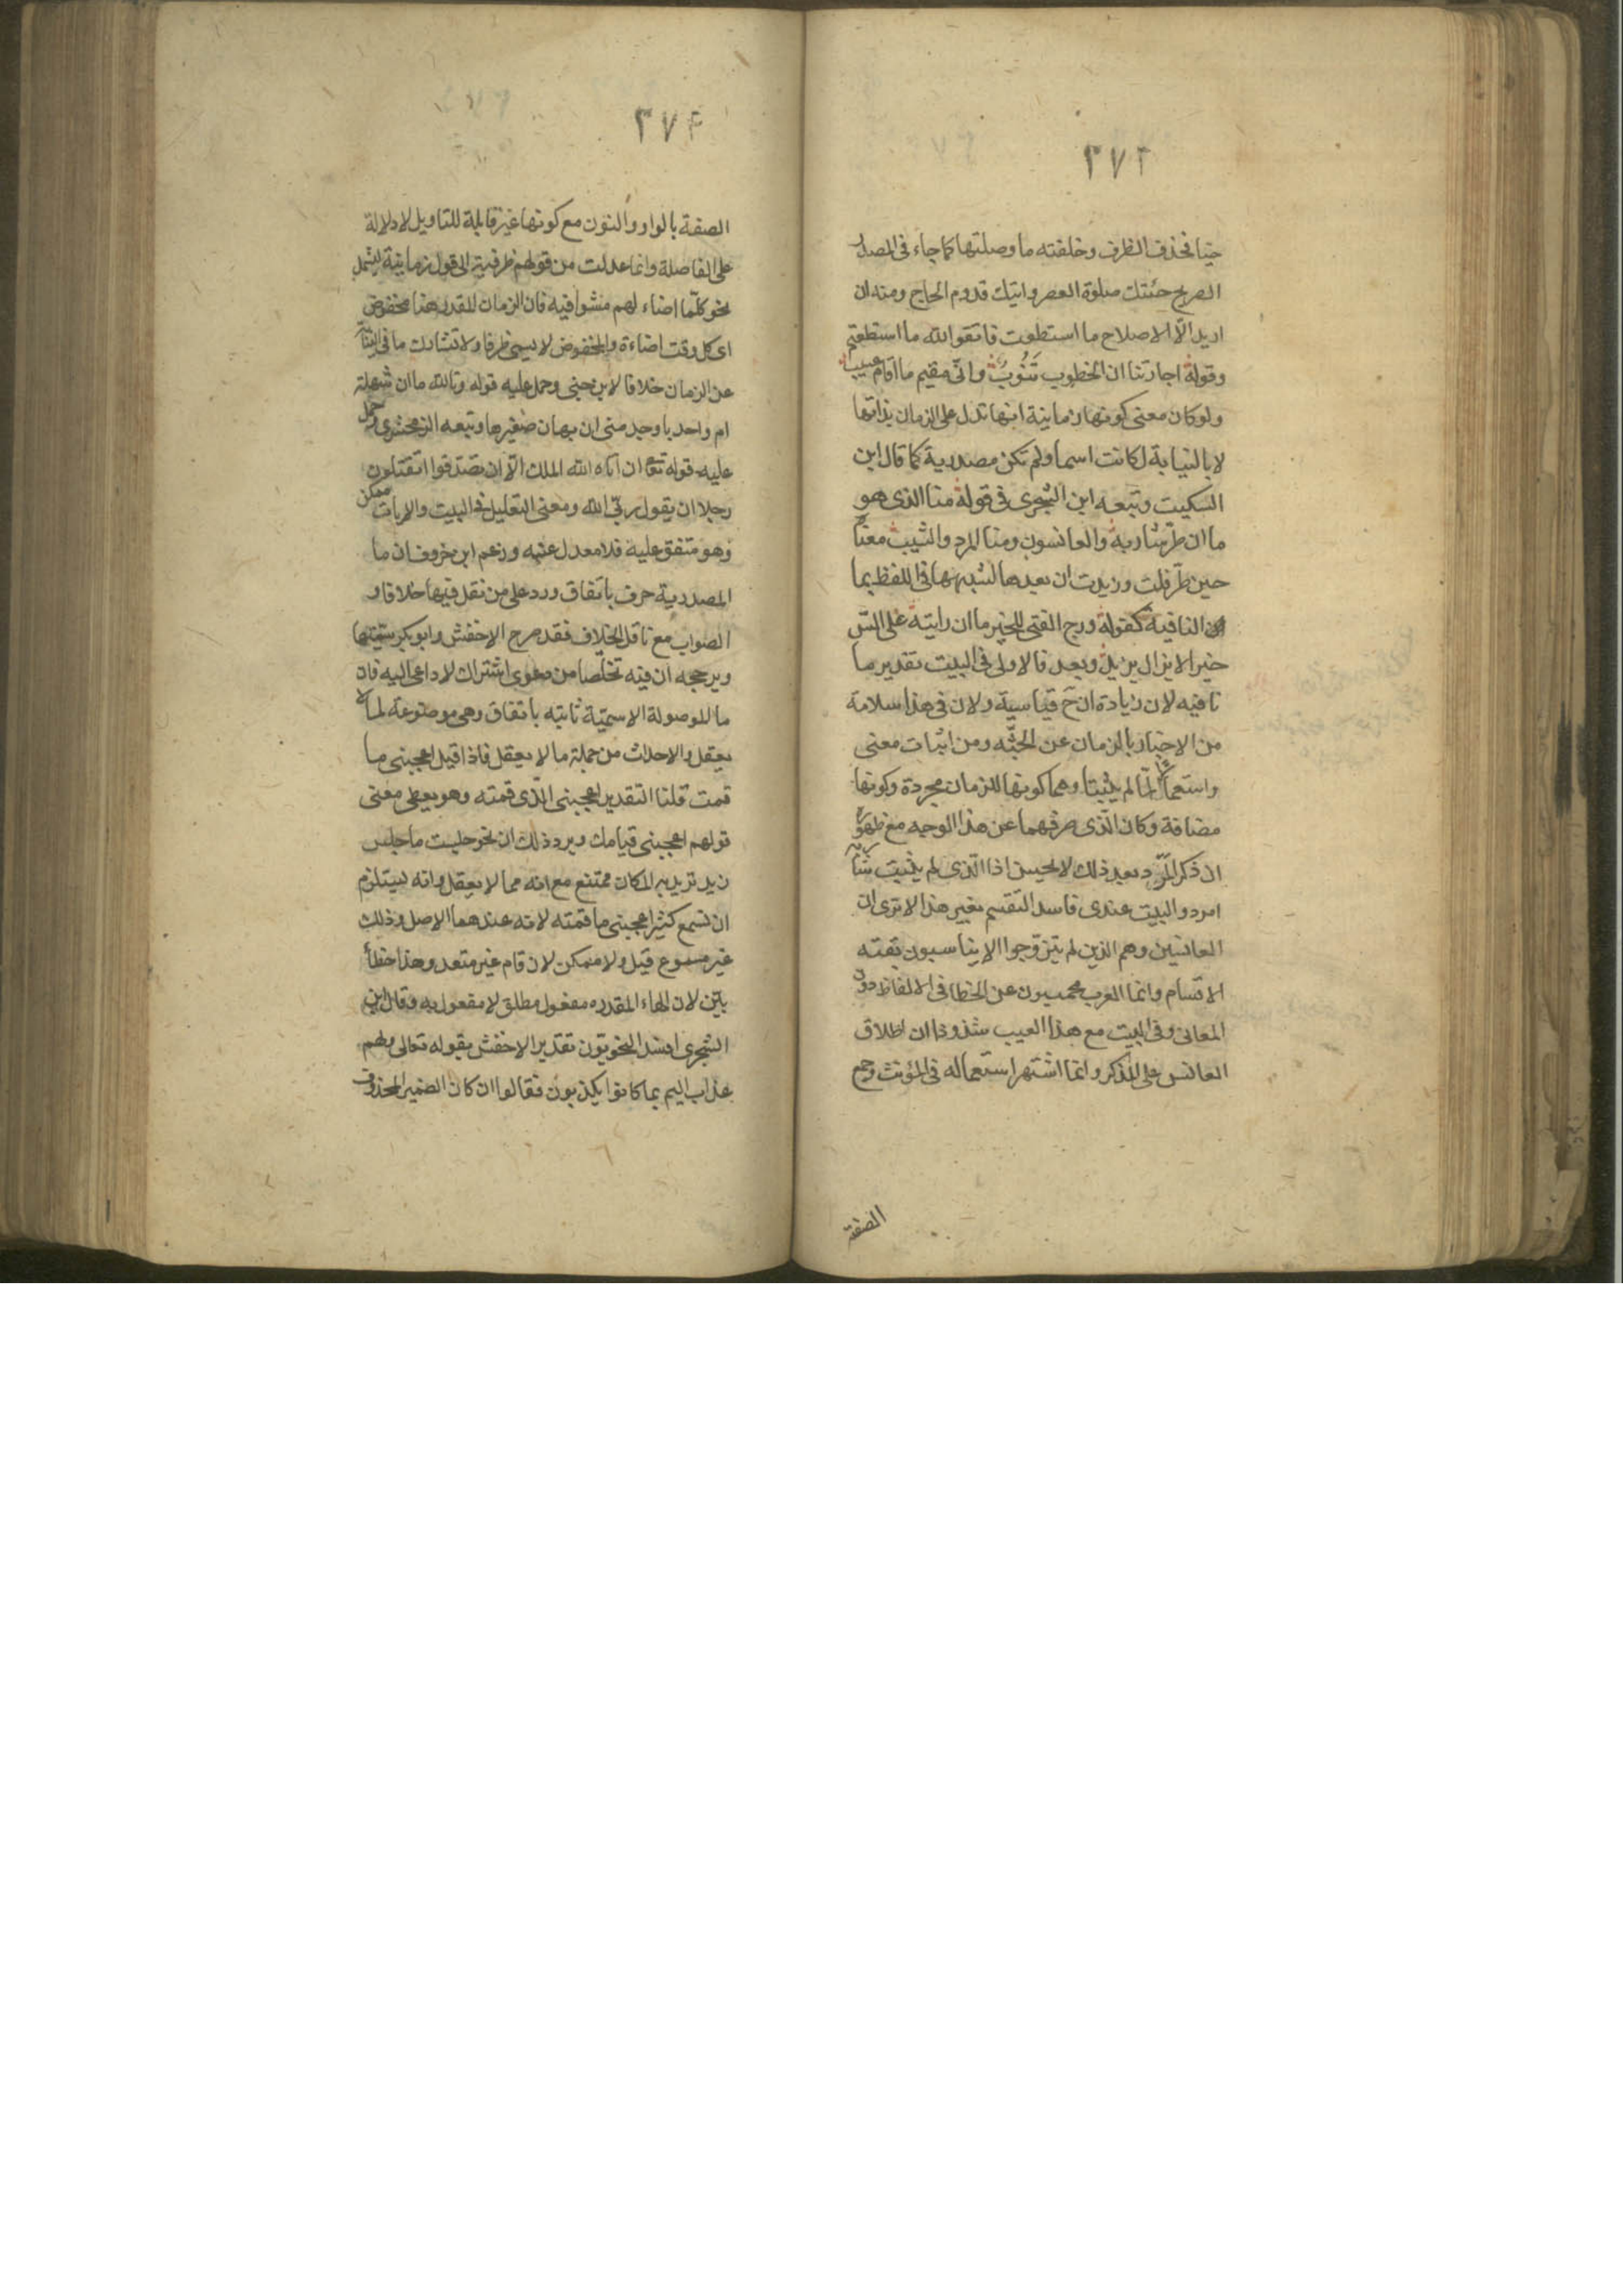 ٢٧٣
حيا فحذف الظرف وخلفته ما وصلتها كما جاء فى المصدر
الصريح جئتك صلوة العصر واتيك قدوم الحاج ومنه ان
اريد الّا الاصلاح ما استطعت فاتقوا الله ما استطعتم
وقوله اجارتنا ان الخطوب تَنُوبُ وانّى مقيم ما اقام عسيب
ولو كان معنى كونها زمانية انها تدل على الزمان بذاتها
لا بالنيابة لكانت اسما ولم تكن مصدرية كما قال ابن
السكيت وتبعه ابن الشجرى فى قوله منا الذى هو
ما ان طرّ شاربه والعانسون ومنا المرد والشيب معنا
حين طرّ قلت وزيدت ان بعدها لشبهها فى اللفظ بما
النافية كقوله ورج الفتى للخير ما ان رايته على السّن
خيرا لا يزال يزيد وبعد فالاولى فى البيت تقدير ما
نافيه لان زيادة ان ح قياسية ولان فى هذا سلامة
من الاخبار بالزمان عن الجثّه ومن اثبات معنى
واستعمال لما لم يثبتا وهما كونها للزمان مجردة وكونها
مضافة وكان الّذى صرفهما عن هذا الوجه مع ظهوره
ان ذكر المرد بعد ذلك لا يحسن اذا الّذى لم ينبت شاربه
امرد والبيت عندى فاسد التقسيم بغير هذا الا ترى ان
العانسين وهم الذين لم يتزوّجوا لا يناسبون بقيته
الاقسام وانما العرب محميون عن الخطا فى الالفاظ دون
المعانى وفى البيت مع هذا العيب شذوذان اطلاق
العانس على المذكر وانما اشتهر استعماله فى المؤنث وجمع
الصفة
٢٧٤
الصفة بالواو والنون مع كونها غير قابلة للتاويل لا دلالة
على المفاضلة وانما عدلت من قولهم ظرفية الى قول زمانية ليشمل
نحو كلّما اضاء لهم مشوا فيه فان الزمان المقدر هنا مخفوض
اى كل وقت اضاءة والمخفوض لا يسمى ظرفا ولا تشارك ما فى النيابة
عن الزمان خلافا لابن جنى وحمل عليه قوله وتالله ما ان شهلة
ام واحد باوجد منى ان يهان صغيرها وتبعه الزمخشرى وحمل
عليه قوله تعا ان اتاه الله الملك الّا ان يصّدقوا اتقتلون
رجلا ان يقول ربّى الله ومعنى التعليل فى البيت والايات ممكن
وهو متفق عليه فلا معدل عنه وزعم ابن خروف ان ما
المصدرية حرف باتفاق ورد على من نقل فيها خلافا و
الصواب مع ناقل الخلاف فقد صرح الاخفش وابو بكر باسميتها
ويرجحه ان فيه تخلّصا من دعوى اشتراك لا داعى اليه فان
ما الموصولة الاسميّة ثابته باتفاق وهى موضوعة لما لا
يعقل والاحداث من جملة ما لا يعقل فاذا قيل اعجبنى ما
قمت قلنا التقدير اعجبنى الّذى قمته وهو يعطى معنى
قولهم اعجبنى قيامك ويرد ذلك ان نحو جلست ما جلس
زيد تريد به المكان ممتنع مع انه مما لا يعقل وانه يستلزم
ان تسمع كثيرا اعجبنى ما قمته لانه عندهما الاصل وذلك
غير مسموع قيل ولا ممكن لان قام غير متعد وهذا خطأ
بيّن لان الهاء المقدره مفعول مطلق لا مفعول به وقال ابن
الشجرى افسد النحويون تقدير الاخفش بقوله تعالى ولهم
عذاب اليم بما كانوا يكذبون فقالوا ان كان الضمير المحذوف